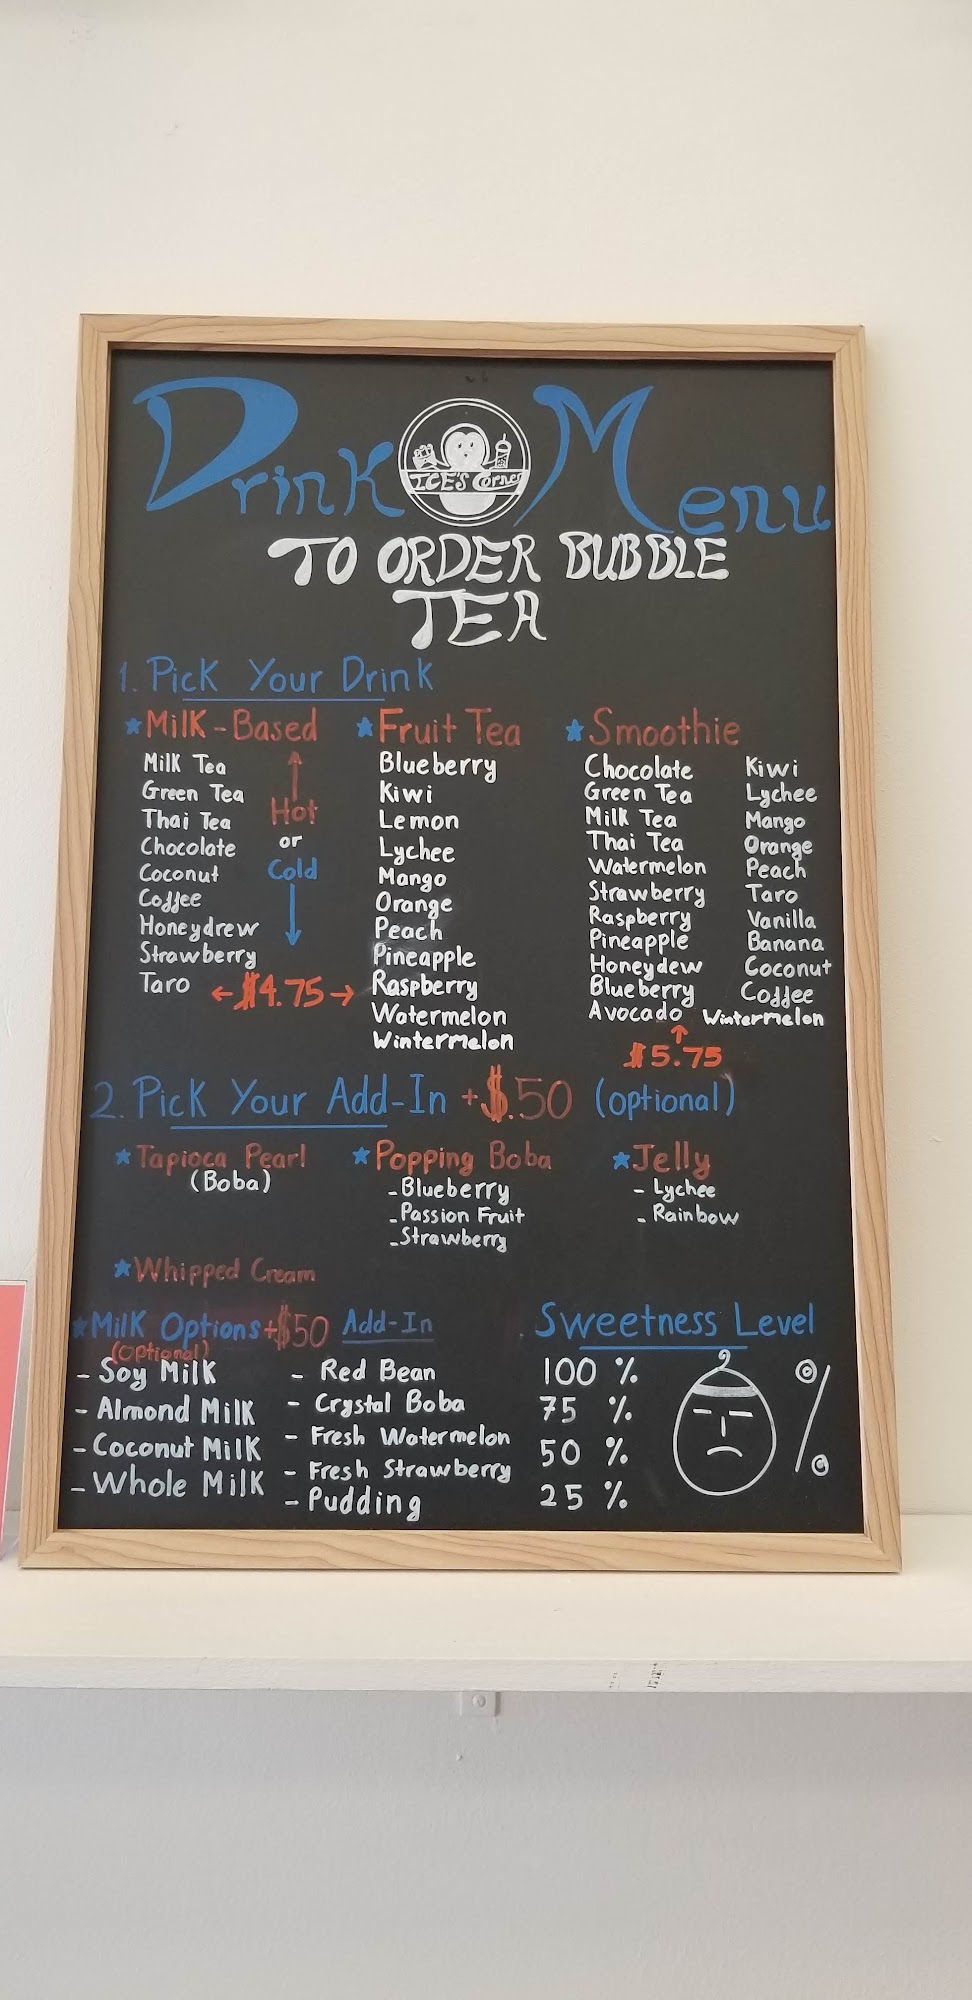 Drink Menu
ICE'S Corner
TO ORDER BUBBLE
TEA
1. Pick Your Drink
★Milk-Based
Milk Tea
Green Tea
Thai Tea
Chocolate
Coconut
Coffee
Honeydrew
Strawberry
Taro
Hot
or
Cold
←$4.75→
★Fruit Tea
Blueberry
Kiwi
Lemon
Lychee
Mango
Orange
Peach
Pineapple
Raspberry
Watermelon
Wintermelon
★Smoothie
Chocolate
Green Tea
Milk Tea
Thai Tea
Watermelon
Strawberry
Raspberry
Pineapple
Honeydew
Blueberry
Avocado
Kiwi
Lychee
Mango
Orange
Peach
Taro
Vanilla
Banana
Coconut
Coffee
Wintermelon
$5.75
2. Pick Your Add-In +$.50 (optional)
★Tapioca Pearl
(Boba)
★Popping Boba
-Blueberry
-Passion Fruit
-Strawberry
★Jelly
- Lychee
- Rainbow
★Whipped Cream
★Milk Options+$50
(optional)
- Soy Milk
- Almond Milk
- Coconut Milk
- Whole Milk
Add-In
- Red Bean
- Crystal Boba
- Fresh Watermelon
- Fresh Strawberry
- Pudding
Sweetness Level
100 %
75 %
50 %
25 %
%